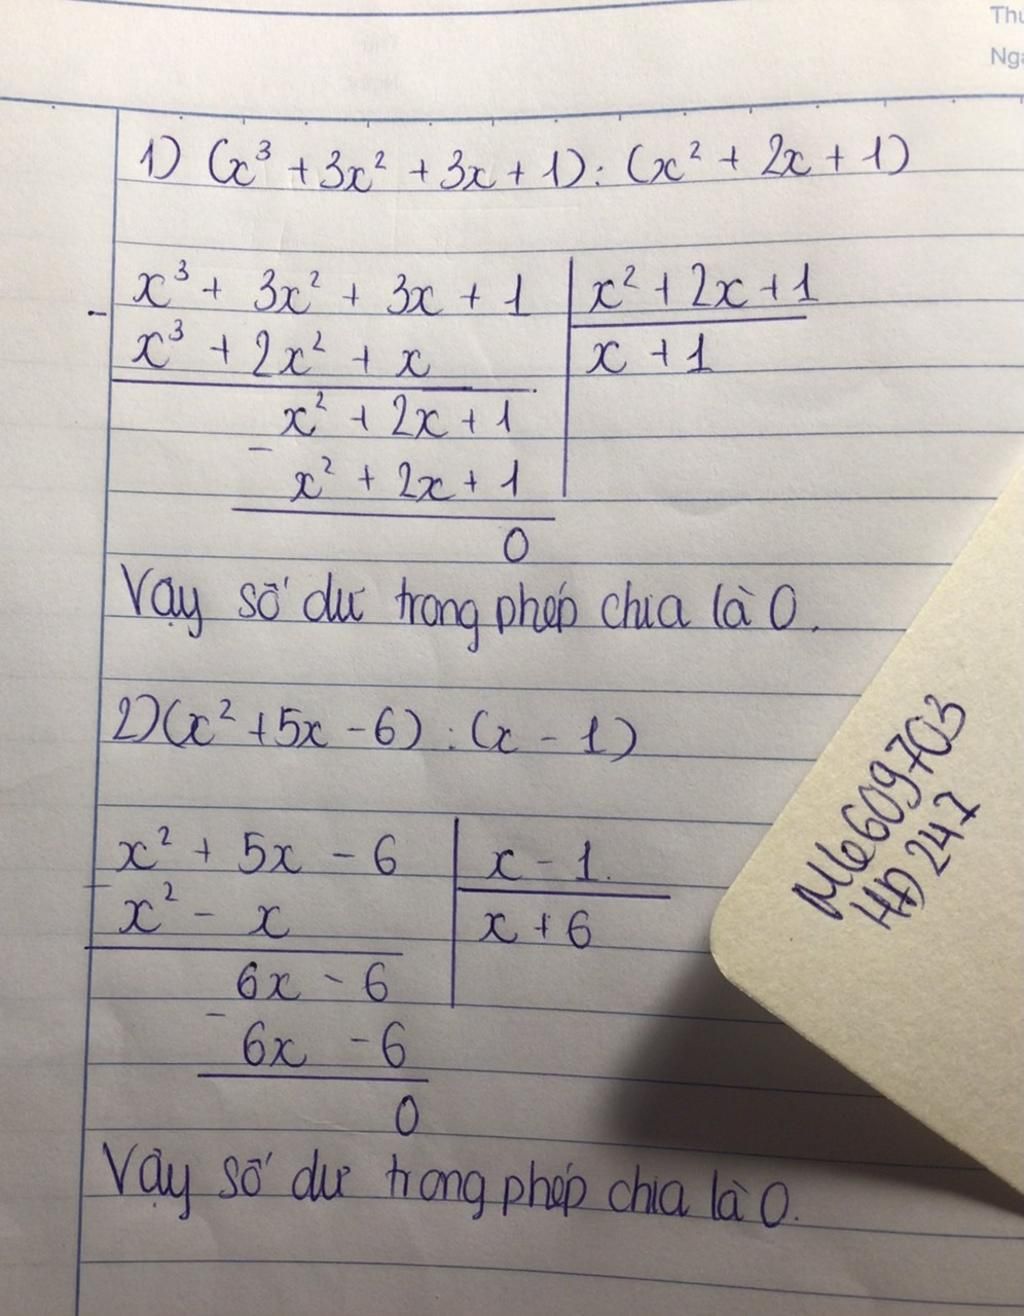 Thứ
Ngà
1) (x³ + 3x² + 3x + 1) : (x² + 2x + 1)
x³ + 3x² + 3x + 1 | x² + 2x + 1
-
x³ + 2x² + x | x + 1
x² + 2x + 1
-
x² + 2x + 1
0
Vậy số dư trong phép chia là 0.
2) (x² + 5x - 6) : (x - 1)
x² + 5x - 6 | x - 1
-
x² - x | x + 6
6x - 6
-
6x - 6
0
Vậy số dư trong phép chia là 0.
M6609703
HD 247